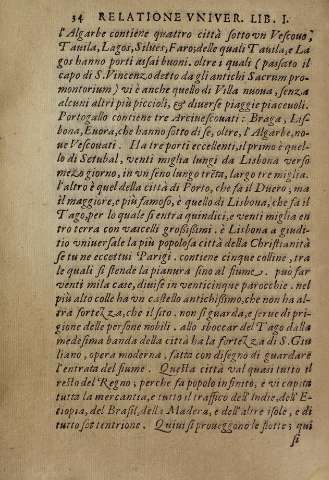 34 RELATIONE VNIVER. LIB. I.
l'Algarbe contiene quattro città sotto vn Vescouo,
Tauila, Lagos, Silues, Faro; delle quali Tauila, e La
gos hanno porti assai buoni. oltre i quali (passato il
capo di S. Vincenzo detto da gli antichi Sacrum pro-
montorium) vi è anche quello di Villa nuoua, senza
alcuni altri più piccioli, & diuerse piaggie piaceuoli.
Portogallo contiene tre Arciuescouati: Braga, Lis-
bona, Euora, che hanno sotto di se, oltre, l'Algarbe, no-
ue Vescouati. Ha tre porti eccellenti, il primo è quel-
lo di Setubal, venti miglia lungi da Lisbona verso
mezo giorno, in vn seno lungo trēta, largo tre miglia.
l'altro è quel della città di Porto, che fa il Duero; ma
il maggiore, e più famoso, è quello di Lisbona, che fa il
Tago, per lo quale si entra quindici, e venti miglia en
tro terra con vascelli grossissimi. è Lisbona a giudi-
tio vniuersale la più popolosa città della Christianità
se tu ne eccettui Parigi. contiene cinque colline, tra
le quali si stende la pianura sino al fiume. può far
venti mila case, diuise in venticinque parocchie. nel
più alto colle ha vn castello antichissimo, che non ha al-
tra fortezza, che il sito. non si guarda, e serue di pri-
gione delle persone nobili. allo sboccar del Tago dalla
medesima banda della città ha la fortezza di S. Giu
liano, opera moderna, fatta con disegno di guardare
l'entrata del fiume. Questa città val quasi tutto il
resto del Regno; perche fa popolo infinito; e vi capita
tutta la mercantia, e tutto il traffico dell'Indie, dell'E-
tiopia, del Brasil, della Madera, e dell'altre isole, e di
tutto settentrione. Quiui si proueggono le flotte; qui
si